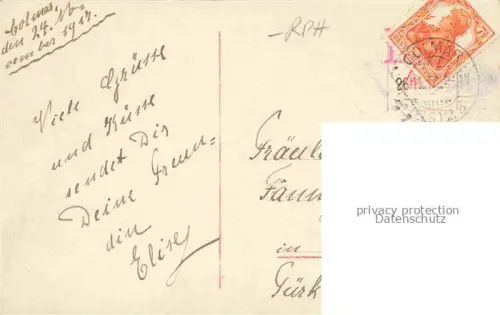 Colmar,
den 24. No-
vember 1917.
Viele Grüsse
und Küsse
sendet Dir
Deine Freun-
din
Elise
RPH
COLMAR
Fräul
Fann
in
Türk
privacy protection
Datenschutz